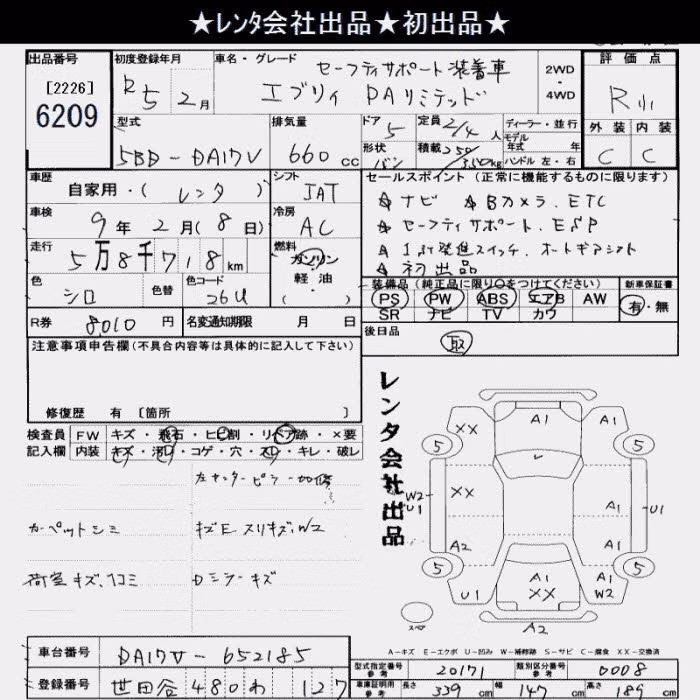 ★レンタ会社出品★初出品★
出品番号
[2226]
6209
初度登録年月
R5 2月
車名・グレード
セーフティサポート装着車
エブリィ PAリミテッド
2WD・4WD
評価点
R
外装 内装
C C
型式
5BD-DA17V
排気量
660 cc
ドア 5
形状 バン
定員 2/4 人
積載 250/350kg
ディーラー・並行
モデル年式 年
ハンドル 左・右
車歴
自家用・(レンタ)
シフト
IAT
車検
9年2月(8日)
冷房
AC
走行
5万8千718km
燃料
ガソリン・軽油・( )
色
シロ
色替
色コード
26U
R券 8010 円
名変通知期限 月 日
セールスポイント (正常に機能するものに限ります)
ナビ Bカメラ.ETC
セーフティサポート.ESP
1st発進スイッチ.オートギアシフト
初出品
装備品 (純正品に限り○をつけてください)
PS PW ABS エアB AW
SR ナビ TV カワ
新車保証書
有・無
後日品
取
注意事項申告欄(不具合内容等は具体的に記入して下さい)
修復歴 有 [箇所 ]
検査員記入欄
FW キズ・飛石・ヒビ割・リペア跡・×要
内装 キズ・汚レ・コゲ・穴・スレ・キレ・破レ
左センターピラー加修
カーペットシミ
キズE スリキズ.W2
荷室キズ.凹ミ
Dシラーキズ
レンタ会社出品
A1
XX A1
5 5
XX
W2
U1 A1 U1
A2 A1
5 5
A1 A1
U1 XX W2
スペア
A2
A-キズ E-エクボ U-凹み W-補修跡 S-サビ C-腐食 XX-交換済
車台番号
DA17V-652185
登録番号
世田谷480わ127
型式指定番号 参考
20171
類別区分番号 参考
0008
車庫証明用 参考
長さ 339 cm 幅 147 cm 高さ 189 cm